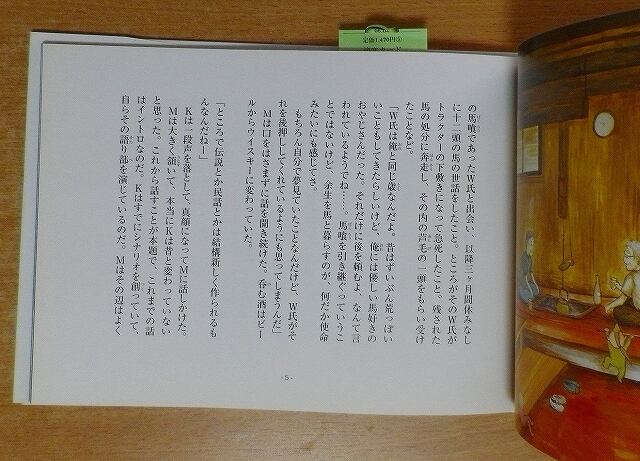 の馬喰であったW氏と出会い、以降三ヶ月間休みなし
に十二頭の馬の世話をしたこと。ところがそのW氏が
トラクターの下敷きになって急死したこと。残された
馬の処分に奔走し、その内の芦毛の一頭をもらい受け
たことなど。
「W氏は俺と同じ歳なんだよ。昔はずいぶん荒っぽい
いこともしてきたらしいけど、俺には優しい馬好きの
おやじさんだった。それだけに後を頼むよ、なんて言
われているようでね……。馬喰を引き継ぐっていうこ
とではないけど、余生を馬と暮らすのが、何だか使命
みたいにも感じてさ。
もちろん自分で夢見ていたことなんだけど、W氏がそ
れを後押ししてくれているようにも思ってしまうんだ」
Mは口をはさまずに話を聞き続けた。呑む酒はビー
ルからウイスキーに変わっていた。
「ところで伝説とか民話とかは結構新しく作られるも
んなんだね―」
Kは一段声を落として、真顔になってMに話しかけた。
Mは大きく頷いて、本当にKは昔と変わっていない
と思った。これから話すことが本題で、これまでの話
はイントロなのだ。Kはすでにシナリオを創っていて、
自らその語り部を演じているのだ。Mはその辺はよく
-5-
定価1,470円⑤